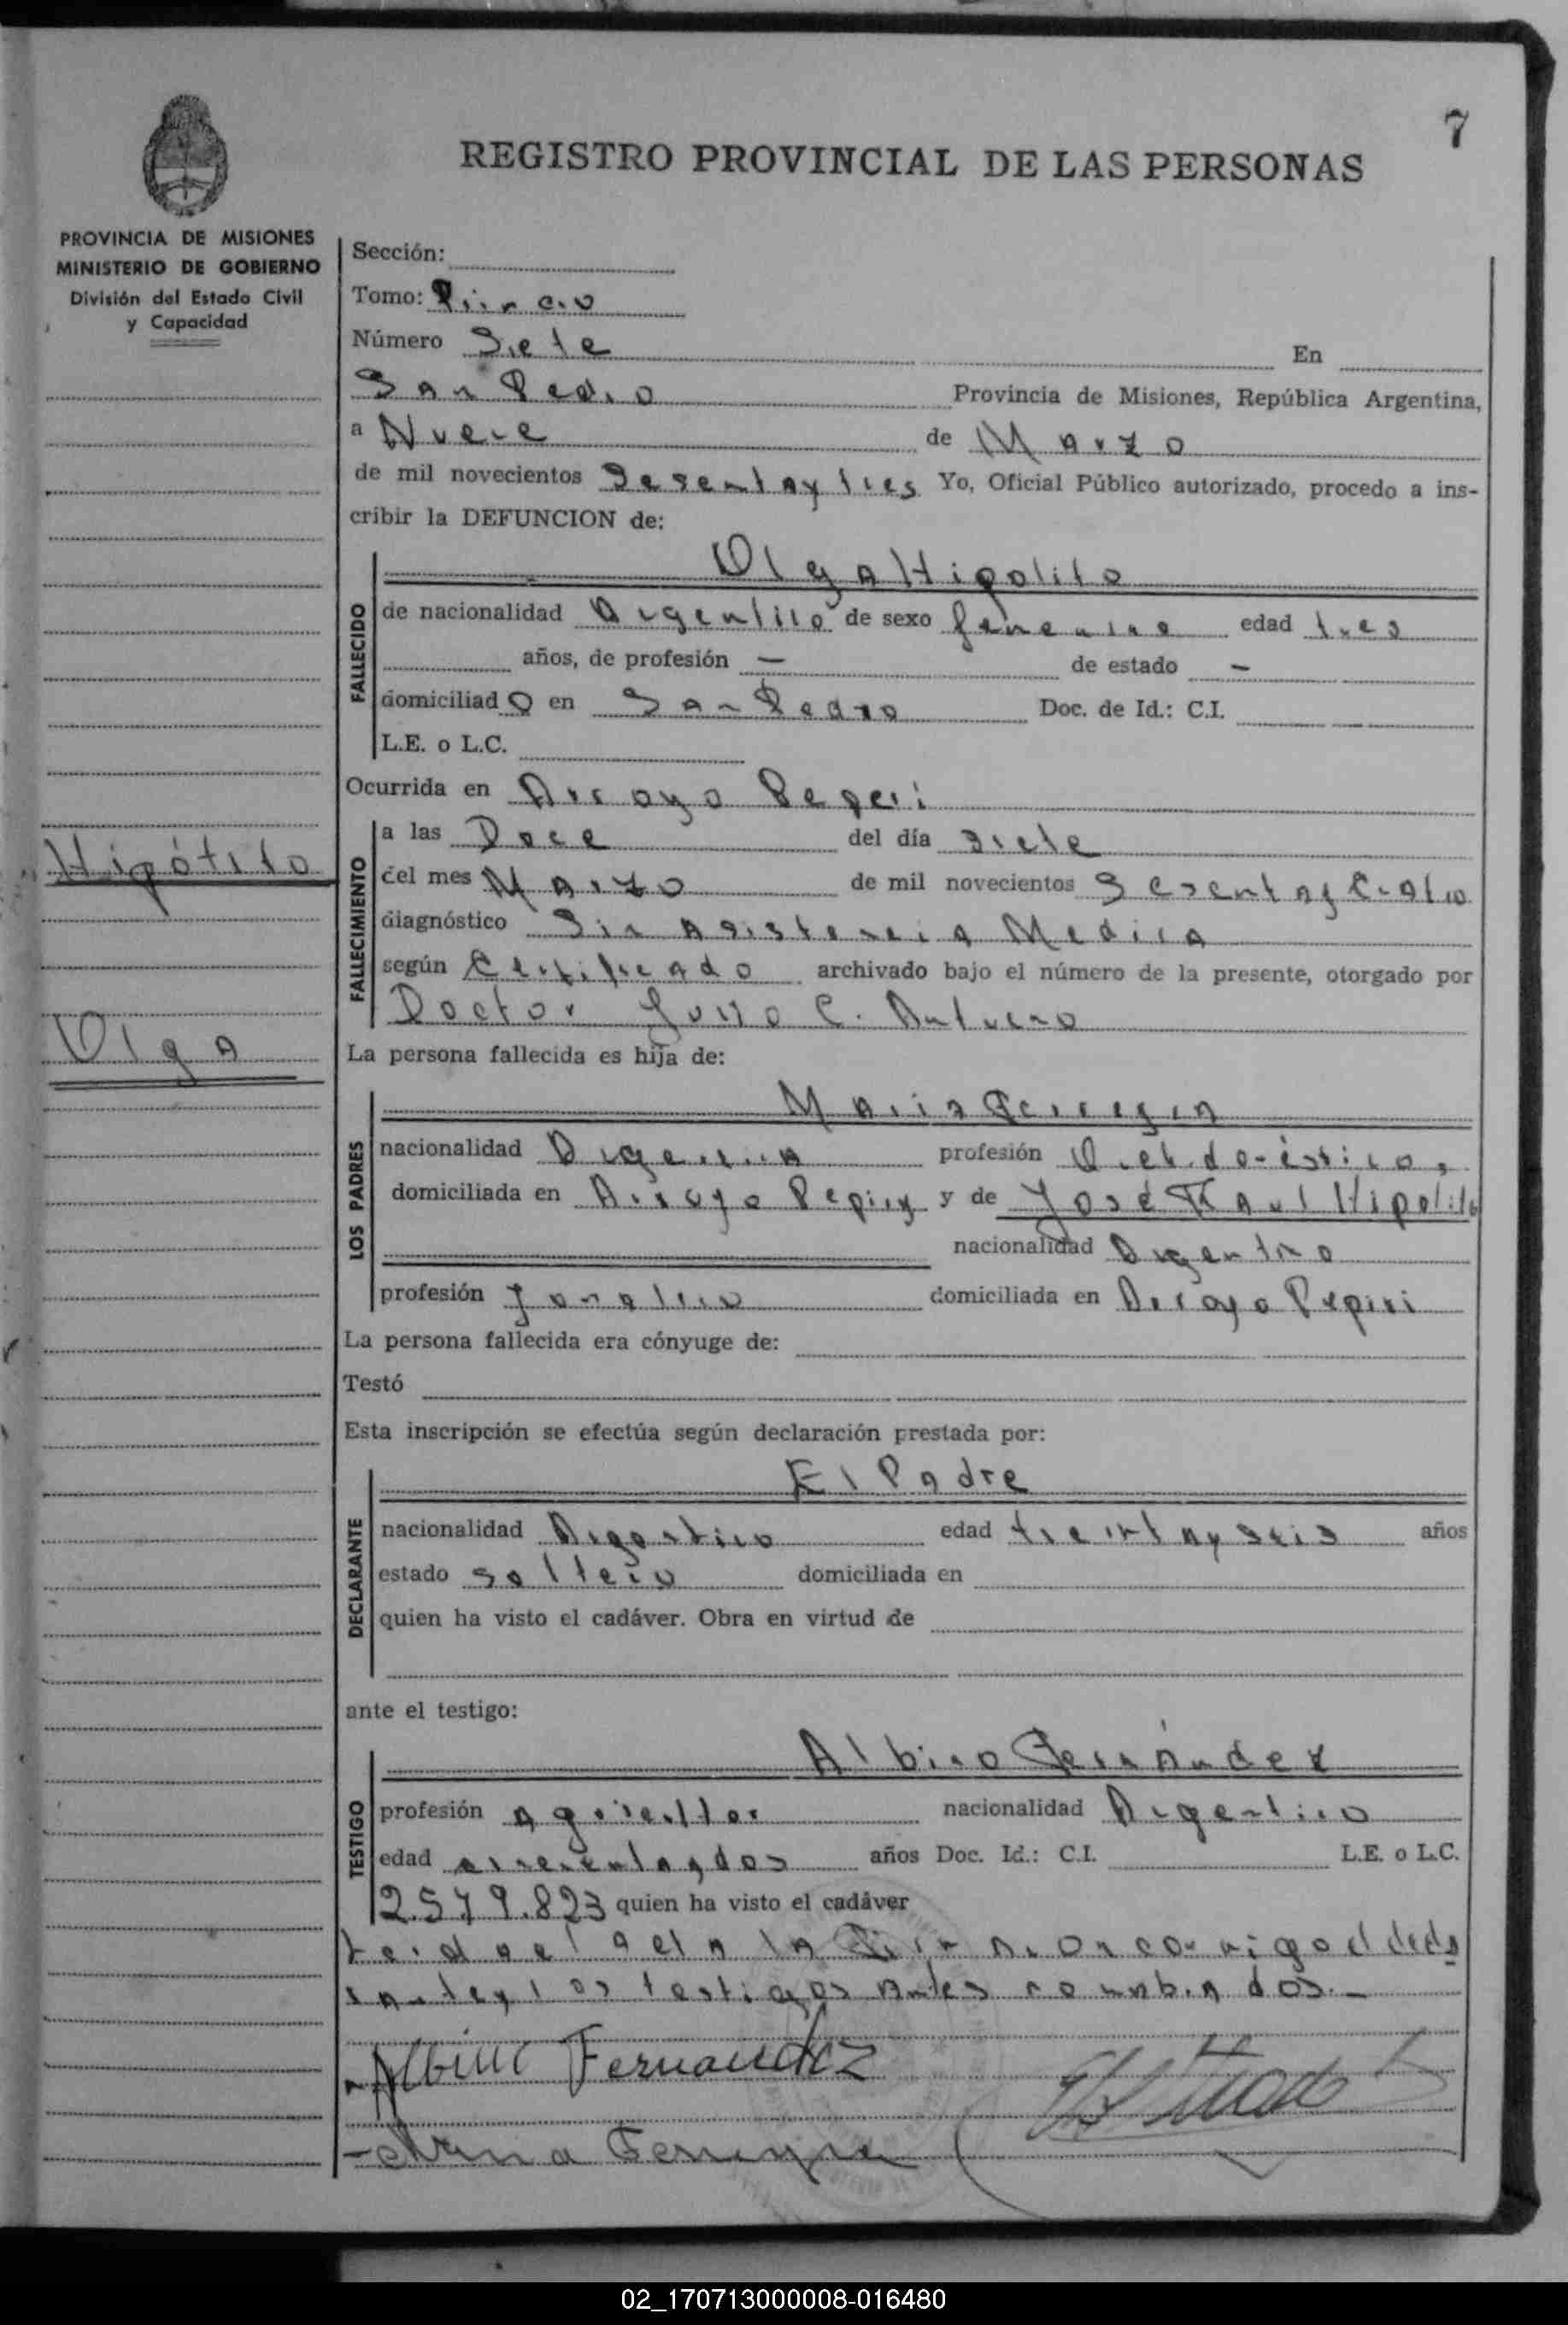 7
REGISTRO PROVINCIAL DE LAS PERSONAS
PROVINCIA DE MISIONES
MINISTERIO DE GOBIERNO
División del Estado Civil
y Capacidad
Sección:
Tomo:
Número Siete
En
San Pedro Provincia de Misiones, República Argentina,
a Nueve de Marzo
de mil novecientos Yo, Oficial Público autorizado, procedo a ins-
cribir la DEFUNCION de:
Olga Hipolito
FALLECIDO
de nacionalidad de sexo edad tres
años, de profesión — de estado —
domiciliad o en San Pedro Doc. de Id.: C.I.
L.E. o L.C.
Ocurrida en Arroyo Peperi
FALLECIMIENTO
a las Doce del día siete
del mes Marzo de mil novecientos
diagnóstico Sin Medica
según Certificado archivado bajo el número de la presente, otorgado por
Doctor
La persona fallecida es hija de:
Hipólito
Olga
LOS PADRES
Maria Ferreyra
nacionalidad profesión
domiciliada en Arroyo y de José Raul Hipolito
nacionalidad Argentino
profesión domiciliada en Arroyo Pepiri
La persona fallecida era cónyuge de:
Testó
Esta inscripción se efectúa según declaración prestada por:
El Padre
DECLARANTE
nacionalidad Argentino edad treintayseis años
estado soltero domiciliada en
quien ha visto el cadáver. Obra en virtud de
ante el testigo:
Albino Fernández
TESTIGO
profesión nacionalidad Argentino
edad años Doc. Id.: C.I. L.E. o L.C.
2.579.823 quien ha visto el cadáver
testigos antes
Albino Fernandez
02_170713000008-016480